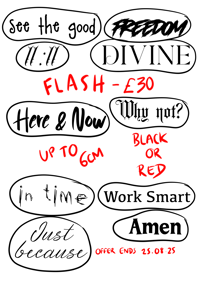 See the good
FREEDOM
11:11
DIVINE
FLASH - £30
Here & Now
Why not?
UP TO 6CM
BLACK
OR
RED
in time
Work Smart
Just
because
Amen
OFFER ENDS 25.08.25